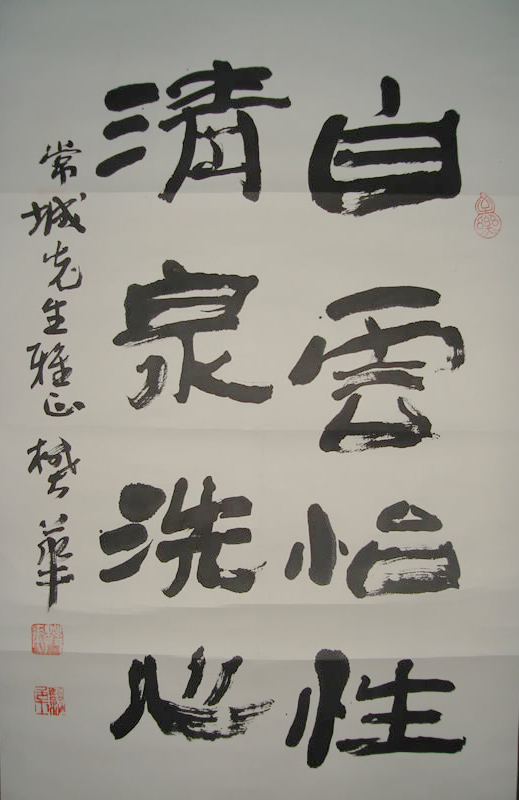 白雲怡性
清泉洗心
常城先生雅正 樊華